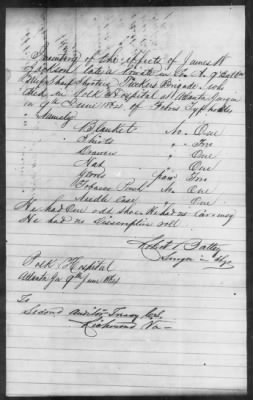 Inventory of the effects of James W
Jackson late a private in Co. A 9th Battn
Miss Sharp Shooters Tucker's Brigade, who
died in Polk Hospital at Atlanta Georgia
on 9th June 1864 of Febris Typhoides
Namely
Blankets No. One
Shirts " Two
Drawers " One
Hat " One
Socks pair Two
Tobacco Pouch No One
Needle Case " One
He had One odd shoe. He had no money
He had no Descriptive roll.
Robert Battey
Surgeon in chge
Polk Hospital
Atlanta Ga 9th June 1864
To
Second Auditor Treasy
Richmond Va